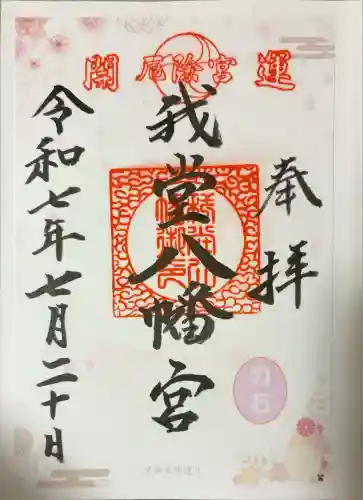 開 厄除宮 運
奉拝
我堂八幡宮
令和七年七月二十日